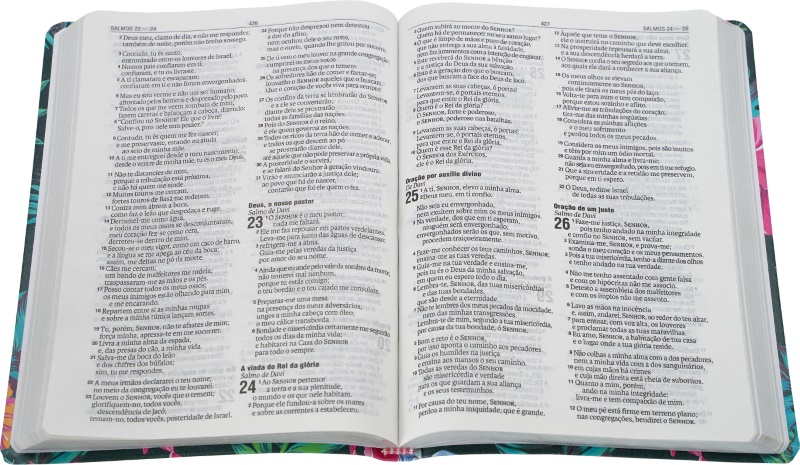 SALMOS 22 — 24
426
2 Deus meu, clamo de dia, e não me respondes;
também de noite, porém não tenho sossego.
3 Contudo, tu és santo,
entronizado entre os louvores de Israel.
4 Nossos pais confiaram em ti;
confiaram, e tu os livraste.
5 A ti clamaram e escaparam;
confiaram em ti e não foram envergonhados.
6 Mas eu sou verme e não um ser humano;
afrontado pelos homens e desprezado pelo povo.
7 Todos os que me veem zombam de mim;
fazem caretas e balançam a cabeça, dizendo:
8 "Confiou no SENHOR! Ele que o livre!
Salve-o, pois nele tem prazer."
9 Contudo, tu és quem me fez nascer;
e me preservaste, estando eu ainda
ao seio de minha mãe.
10 A ti me entreguei desde o meu nascimento;
desde o ventre de minha mãe, tu és o meu Deus.
11 Não te distancies de mim,
porque a tribulação está próxima,
e não há quem me ajude.
12 Muitos touros me cercam,
fortes touros de Basã me rodeiam.
13 Contra mim abrem a boca,
como faz o leão que despedaça e ruge.
14 Derramei-me como água,
e todos os meus ossos se desconjuntaram;
meu coração fez-se como cera,
derreteu-se dentro de mim.
15 Secou-se o meu vigor, como um caco de barro,
e a língua se me apega ao céu da boca;
assim, me deitas no pó da morte.
16 Cães me cercam;
um bando de malfeitores me rodeia;
traspassaram-me as mãos e os pés.
17 Posso contar todos os meus ossos;
os meus inimigos estão olhando para mim
e me encarando.
18 Repartem entre si as minhas roupas
e sobre a minha túnica lançam sortes.
19 Tu, porém, SENHOR, não te afastes de mim;
força minha, apressa-te em me socorrer.
20 Livra a minha alma da espada,
e, das presas do cão, a minha vida.
21 Salva-me da boca do leão
e dos chifres dos búfalos;
sim, tu me respondes.
22 A meus irmãos declararei o teu nome;
no meio da congregação eu te louvarei.
23 Louvem o SENHOR, vocês que o temem;
glorifiquem-no, todos vocês,
descendência de Jacó;
temam-no, todos vocês, posteridade de Israel.
24 Porque não desprezou nem detestou
a dor do aflito,
nem ocultou dele o seu rosto,
mas o ouviu, quando lhe gritou por socorro.
25 De ti vem o meu louvor na grande congregação;
cumprirei os meus votos
na presença dos que o temem.
26 Os sofredores hão de comer e fartar-se;
louvarão o SENHOR aqueles que o buscam.
Que o coração de vocês viva para sempre!
27 Os confins da terra se lembrarão do SENHOR
e a ele se converterão;
diante dele se prostrarão
todas as famílias das nações.
28 Pois do SENHOR é o reino,
é ele quem governa as nações.
29 Todos os ricos da terra hão de comer e adorar,
e todos os que descem ao pó
se prostrarão diante dele,
até aquele que não pode preservar a própria vida.
30 A posteridade o servirá,
e se falará do Senhor à geração vindoura.
31 Virão e anunciarão a justiça dele;
ao povo que há de nascer,
contarão que foi ele quem o fez.
Deus, o nosso pastor
Salmo de Davi
23 1 O SENHOR é o meu pastor;
nada me faltará.
2 Ele me faz repousar em pastos verdejantes.
Leva-me para junto das águas de descanso;
3 refrigera-me a alma.
Guia-me pelas veredas da justiça
por amor do seu nome.
4 Ainda que eu ande pelo vale da sombra da morte,
não temerei mal nenhum,
porque tu estás comigo;
o teu bordão e o teu cajado me consolam.
5 Preparas-me uma mesa
na presença dos meus adversários,
unges a minha cabeça com óleo;
o meu cálice transborda.
6 Bondade e misericórdia certamente me seguirão
todos os dias da minha vida;
e habitarei na Casa do SENHOR
para todo o sempre.
A vinda do Rei da glória
Salmo de Davi
24 1 Ao SENHOR pertence
a terra e a sua plenitude,
o mundo e os que nele habitam.
2 Porque ele fundou-a sobre os mares
e sobre as correntes a estabeleceu.
427
SALMOS 24 — 26
3 Quem subirá ao monte do SENHOR?
Quem há de permanecer no seu santo lugar?
4 O que é limpo de mãos e puro de coração,
que não entrega a sua alma à falsidade,
nem faz juramentos com a intenção de enganar.
5 Este receberá do SENHOR a bênção
e a justiça do Deus da sua salvação.
6 Esta é a geração dos que o buscam,
dos que buscam a face do Deus de Jacó.
7 Levantem as suas cabeças, ó portas!
Levantem-se, ó portais eternos,
para que entre o Rei da glória!
8 Quem é o Rei da glória?
O SENHOR, forte e poderoso,
o SENHOR, poderoso nas batalhas.
9 Levantem as suas cabeças, ó portas!
Levantem-se, ó portais eternos,
para que entre o Rei da glória!
10 Quem é esse Rei da glória?
O SENHOR dos Exércitos,
ele é o Rei da glória.
Oração por auxílio divino
De Davi
25 1 A ti, SENHOR, elevo a minha alma.
2 Deus meu, em ti confio.
Não seja eu envergonhado,
nem exultem sobre mim os meus inimigos.
3 Na verdade, dos que em ti esperam,
ninguém será envergonhado;
envergonhados serão os que, sem motivo,
procedem traiçoeiramente.
4 Faze-me conhecer os teus caminhos, SENHOR,
ensina-me as tuas veredas.
5 Guia-me na tua verdade e ensina-me,
pois tu és o Deus da minha salvação,
em quem eu espero todo o dia.
6 Lembra-te, SENHOR, das tuas misericórdias
e das tuas bondades,
que são desde a eternidade.
7 Não te lembres dos meus pecados da mocidade,
nem das minhas transgressões.
Lembra-te de mim, segundo a tua misericórdia,
por causa da tua bondade, ó SENHOR.
8 Bom e reto é o SENHOR,
por isso aponta o caminho aos pecadores.
9 Guia os humildes na justiça
e ensina aos mansos o seu caminho.
10 Todas as veredas do SENHOR
são misericórdia e verdade
para os que guardam a sua aliança
e os seus testemunhos.
11 Por causa do teu nome, SENHOR,
perdoa a minha iniquidade, que é grande.
12 Àquele que teme o SENHOR,
ele o instruirá no caminho que deve escolher.
13 Na prosperidade repousará a sua alma,
e a sua descendência herdará a terra.
14 O SENHOR confia o seu segredo aos que o temem,
aos quais ele dará a conhecer a sua aliança.
15 Os meus olhos se elevam
continuamente ao SENHOR,
pois ele tirará os meus pés do laço.
16 Volta-te para mim e tem compaixão,
porque estou sozinho e aflito.
17 Alivia-me as tribulações do coração;
tira-me das minhas angústias.
18 Considera as minhas aflições
e o meu sofrimento
e perdoa todos os meus pecados.
19 Considera os meus inimigos, pois são muitos
e têm por mim um ódio mortal.
20 Guarda a minha alma e livra-me;
não seja eu envergonhado, pois em ti me refugio.
21 Que a sinceridade e a retidão me preservem,
porque em ti espero.
22 Ó Deus, redime Israel
de todas as suas tribulações.
Oração de um justo
Salmo de Davi
26 1 Faze-me justiça, SENHOR,
pois tenho andado na minha integridade
e confio no SENHOR, sem vacilar.
2 Examina-me, SENHOR, e prova-me;
sonda o meu coração e os meus pensamentos.
3 Pois a tua misericórdia, tenho-a diante dos olhos
e tenho andado na tua verdade.
4 Não me tenho assentado com gente falsa
e com os hipócritas não me associo.
5 Detesto a assembleia dos malfeitores
e com os ímpios não me assento.
6 Lavo as mãos na inocência
e, assim, andarei, SENHOR, ao redor do teu altar,
7 para entoar, com voz alta, os louvores
e proclamar todas as tuas maravilhas.
8 Eu amo, SENHOR, a habitação de tua casa
e o lugar onde a tua glória reside.
9 Não colhas a minha alma com a dos pecadores,
nem a minha vida com a dos sanguinários,
10 em cujas mãos há crimes
e cuja mão direita está cheia de subornos.
11 Quanto a mim, porém,
ando na minha integridade;
livra-me e tem compaixão de mim.
12 O meu pé está firme em terreno plano;
nas congregações, bendirei o SENHOR.